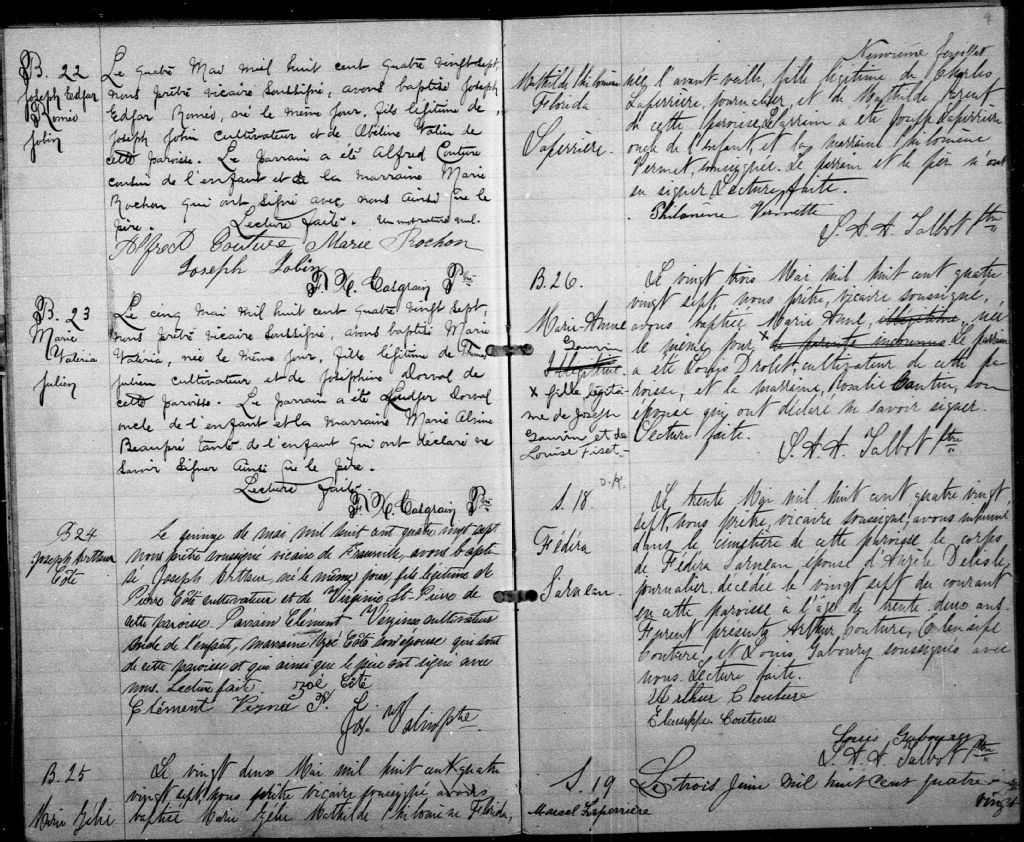 B. 22
Joseph Edgar
Roméo
Jobin
Le quatre Mai mil huit cent quatre vingt sept,
nous prêtre vicaire soussigné, avons baptisé Joseph
Edgar Roméo, né le même jour, fils légitime de
Joseph Jobin cultivateur et de Valin de
cette paroisse. Le parrain a été Alfred Couture
cousin de l'enfant et la marraine Marie
Rochon qui ont signé avec nous ainsi que le
père. Lecture faite. Un mot raturé nul.
Alfred Couture Marie Rochon
Joseph Jobin
F. X. Casgrain Ptre
B. 23
Marie
Valeria
Julien
Le cinq Mai mil huit cent quatre vingt sept,
nous prêtre vicaire soussigné, avons baptisé Marie
Valeria, née le même jour, fille légitime de
Julien cultivateur et de Joséphine Dorval de
cette paroisse. Le parrain a été Dorval
oncle de l'enfant et la marraine Marie
Beaupré tante de l'enfant qui ont déclaré ne
savoir signer ainsi que le père.
Lecture faite.
F. X. Casgrain Ptre
B 24
Joseph Arthur
Côté
Le quinze de mai mil huit cent quatre vingt sept
nous prêtre soussigné vicaire de avons bapti
sé Joseph Arthur, né le même jour, fils légitime de
Pierre Côté cultivateur et de Virginie St. Pierre de
cette paroisse Parrain Clément Vezina cultivateur
oncle de l'enfant, marraine Zoé Côté son épouse qui sont
de cette paroisse et qui ainsi que le père ont signé avec
nous. Lecture faite. Zoé Côté
Clément Vezina P. C.
Jos. ptre
B. 25
Marie Zélie
Le vingt deux Mai mil huit cent quatre
vingt sept, nous prêtre vicaire soussigné avons
baptisé Marie Zélie Mathilde Philomène Florida,
9
Neuvième feuillet
Mathilde Philomène
Florida
Laperrière.
née l'avant veille, fille légitime de Charles
Laperrière, journalier, et de Mathilde
de cette paroisse. Le parrain a été Joseph Laperrière
oncle de l'enfant, et la marraine Philomène
soussignée. Le parrain et le père n'ont
su signer. Lecture faite.
Philomène Vermette
J. A. A. Talbot Ptre
B. 26.
Marie-Anne
Gauvin
Illégitime
x fille légiti-
me de Joseph
Gauvin et de
Louise Fiset.
Le vingt trois Mai mil huit cent quatre
vingt sept, nous prêtre, vicaire soussigné,
avons baptisé Marie Anne, illégitime, née
le même jour, x de parents inconnus Le parrain
a été Louis Drolet, cultivateur de cette pa-
roisse, et la marraine, Rosalie Cantin, son
épouse qui ont déclaré ne savoir signer.
Lecture faite.
J. A. A. Talbot Ptre
S. 18.
Fédéra
Parulean.
Le trente Mai mil huit cent quatre vingt
sept, nous prêtre, vicaire soussigné, avons inhumé
dans le cimetière de cette paroisse le corps
de Fédéra épouse d'Aurèle Delisle,
journalier, décédée le vingt sept du courant
en cette paroisse à l'âge de trente deux ans.
Furent présents Arthur Couture,
Couture, et Louis Gaboury soussignés avec
nous. Lecture faite.
Arthur Couture
Eleusippe Couture
Louis Gaboury
J. A. A. Talbot Ptre
S. 19
Marcel Laperrière
Le trois Juin mil huit cent quatre
vingt